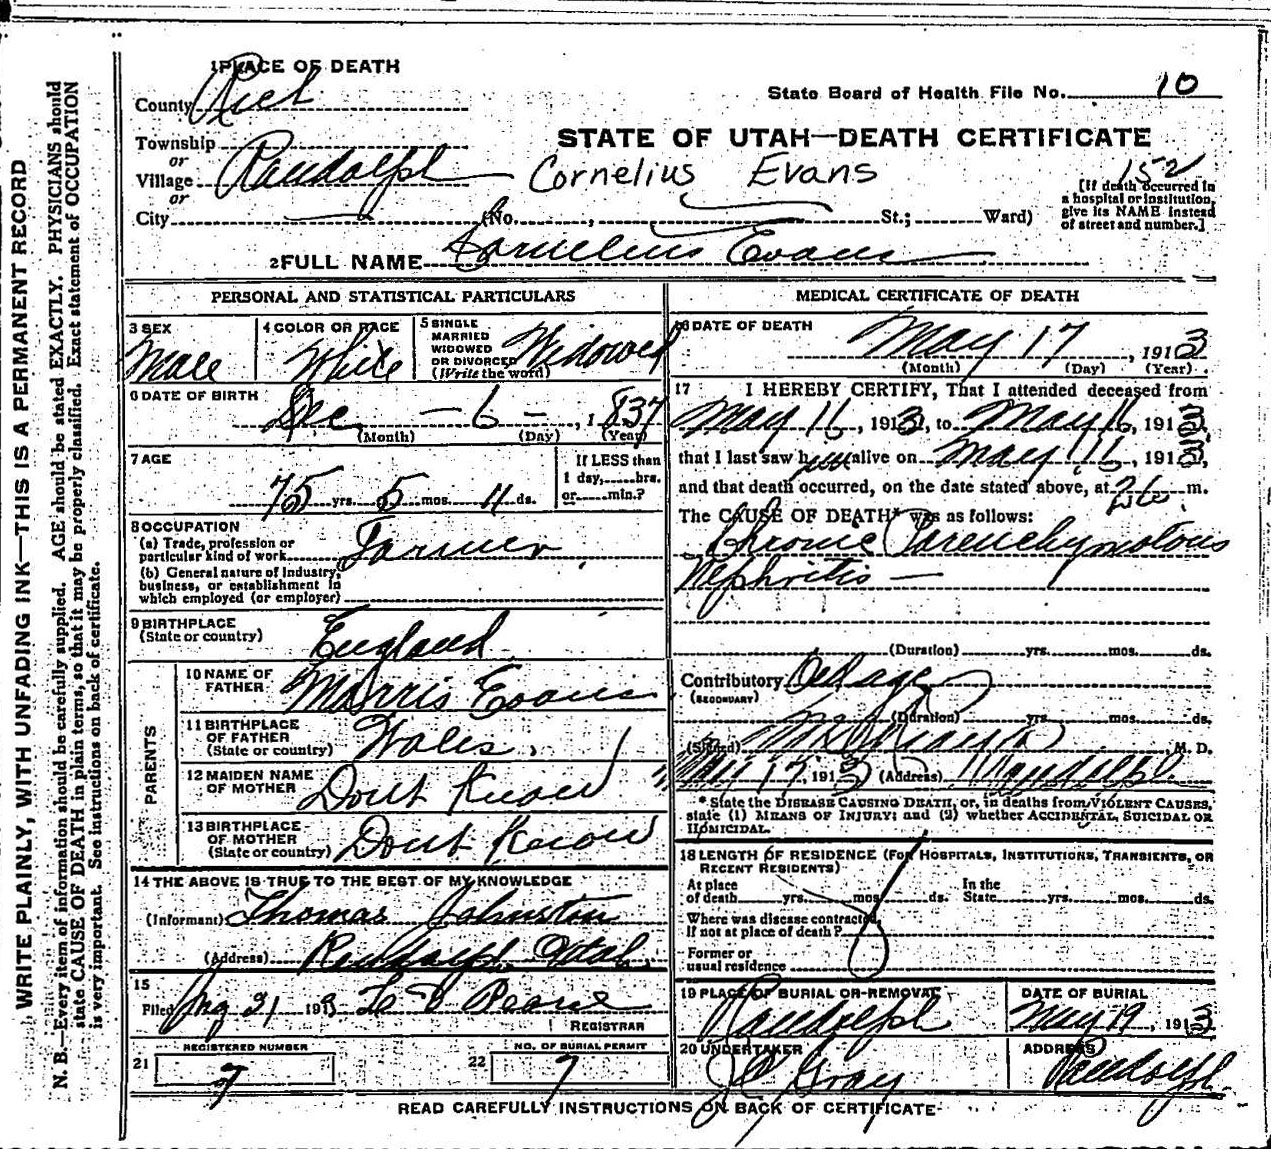 1 PLACE OF DEATH
County Rich
State Board of Health File No. 10
Township
or
Village Randolph
or
City (No. , St.; Ward)
STATE OF UTAH—DEATH CERTIFICATE
Cornelius Evans
152
[If death occurred in
a hospital or institution,
give its NAME instead
of street and number.]
2 FULL NAME Cornelius Evans
PERSONAL AND STATISTICAL PARTICULARS
3 SEX
Male
4 COLOR OR RACE
White
5 SINGLE
MARRIED
WIDOWED
OR DIVORCED
(Write the word)
Widowed
6 DATE OF BIRTH
Dec — 6 — , 1837
(Month) (Day) (Year)
7 AGE
75 yrs. 5 mos. 11 ds.
If LESS than
1 day, hrs.
or min.?
8 OCCUPATION
(a) Trade, profession or
particular kind of work Farmer
(b) General nature of Industry,
business, or establishment in
which employed (or employer)
9 BIRTHPLACE
(State or country) England
PARENTS
10 NAME OF
FATHER Morris Evans
11 BIRTHPLACE
OF FATHER
(State or country) Wales.
12 MAIDEN NAME
OF MOTHER Dont Know
13 BIRTHPLACE
OF MOTHER
(State or country) Dont Know
14 THE ABOVE IS TRUE TO THE BEST OF MY KNOWLEDGE
(Informant) Thomas Johnston
(Address) Randolph Utah.
15
Filed 31 1913
REGISTRAR
REGISTERED NUMBER
21 7
NO. OF BURIAL PERMIT
22 7
MEDICAL CERTIFICATE OF DEATH
16 DATE OF DEATH
May 17 , 1913
(Month) (Day) (Year)
17 I HEREBY CERTIFY, That I attended deceased from
May , 1913, to May 16, 1913,
that I last saw him alive on May , 1913,
and that death occurred, on the date stated above, at m.
The CAUSE OF DEATH* was as follows:
Chronic Parenchymatous
Nephritis —
(Duration) yrs. mos. ds.
Contributory Old age
(SECONDARY)
(Duration) yrs. mos. ds.
(Signed) , M. D.
May 17, 1913 (Address) Randolph
* State the DISEASE CAUSING DEATH, or, in deaths from VIOLENT CAUSES,
state (1) MEANS OF INJURY; and (2) whether ACCIDENTAL, SUICIDAL OR
HOMICIDAL.
18 LENGTH OF RESIDENCE (FOR HOSPITALS, INSTITUTIONS, TRANSIENTS, OR
RECENT RESIDENTS)
At place
of death yrs. mos. ds.
In the
State yrs. mos. ds.
Where was disease contracted,
If not at place of death?
Former or
usual residence
19 PLACE OF BURIAL OR REMOVAL
Randolph
DATE OF BURIAL
May 19, 1913
20 UNDERTAKER
Gray
ADDRESS
Randolph
READ CAREFULLY INSTRUCTIONS ON BACK OF CERTIFICATE
WRITE PLAINLY, WITH UNFADING INK—THIS IS A PERMANENT RECORD
N. B.—Every item of information should be carefully supplied. AGE should be stated EXACTLY. PHYSICIANS should
state CAUSE OF DEATH in plain terms, so that it may be properly classified. Exact statement of OCCUPATION
is very important. See instructions on back of certificate.